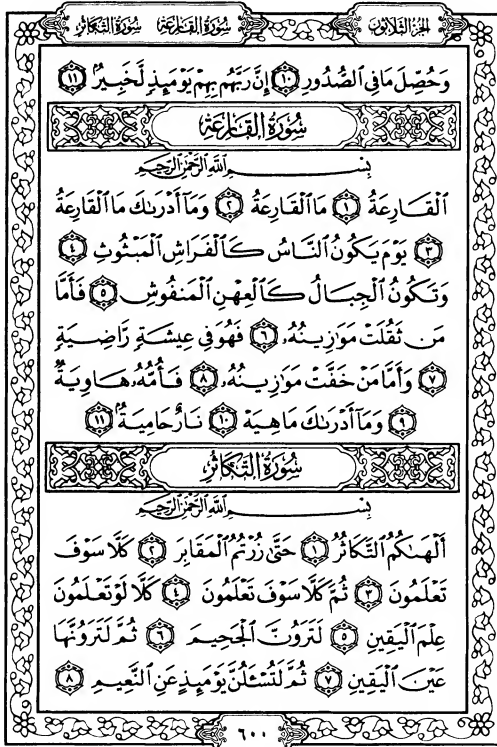 الجزء الثلاثون سُورَةُ القَارِعَة سُورَةُ التَّكَاثُر
وَحُصِّلَ مَا فِي ٱلصُّدُورِ ١٠ إِنَّ رَبَّهُم بِهِمْ يَوْمَئِذٍ لَّخَبِيرٌۢ ١١
سُورَةُ القَارِعَة
بِسْمِ ٱللَّهِ ٱلرَّحْمَٰنِ ٱلرَّحِيمِ
ٱلْقَارِعَةُ ١ مَا ٱلْقَارِعَةُ ٢ وَمَآ أَدْرَىٰكَ مَا ٱلْقَارِعَةُ
٣ يَوْمَ يَكُونُ ٱلنَّاسُ كَٱلْفَرَاشِ ٱلْمَبْثُوثِ ٤
وَتَكُونُ ٱلْجِبَالُ كَٱلْعِهْنِ ٱلْمَنفُوشِ ٥ فَأَمَّا
مَن ثَقُلَتْ مَوَٰزِينُهُۥ ٦ فَهُوَ فِي عِيشَةٍ رَّاضِيَةٍ
٧ وَأَمَّا مَنْ خَفَّتْ مَوَٰزِينُهُۥ ٨ فَأُمُّهُۥ هَاوِيَةٌ
٩ وَمَآ أَدْرَىٰكَ مَا هِيَهْ ١٠ نَارٌ حَامِيَةٌۢ ١١
سُورَةُ التَّكَاثُر
بِسْمِ ٱللَّهِ ٱلرَّحْمَٰنِ ٱلرَّحِيمِ
أَلْهَىٰكُمُ ٱلتَّكَاثُرُ ١ حَتَّىٰ زُرْتُمُ ٱلْمَقَابِرَ ٢ كَلَّا سَوْفَ
تَعْلَمُونَ ٣ ثُمَّ كَلَّا سَوْفَ تَعْلَمُونَ ٤ كَلَّا لَوْ تَعْلَمُونَ
عِلْمَ ٱلْيَقِينِ ٥ لَتَرَوُنَّ ٱلْجَحِيمَ ٦ ثُمَّ لَتَرَوُنَّهَا
عَيْنَ ٱلْيَقِينِ ٧ ثُمَّ لَتُسْـَٔلُنَّ يَوْمَئِذٍ عَنِ ٱلنَّعِيمِ ٨
٦٠٠